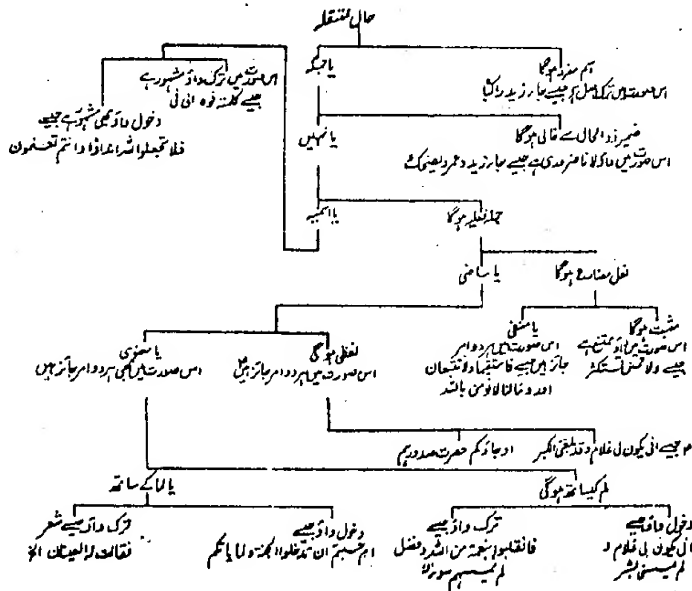 حال منتقلہ
اسم مفرد ہوگا
اس صورت میں ترک اصل ہے جیسے جاء زید راکبا
یا جملہ
ضمیر ذوالحال سے خالی ہوگا
اس صورت میں واؤ لانا ضروری ہے جیسے جاء زید و عمرو یضحک
یا نہیں
جملہ فعلیہ ہوگا
یا اسمیہ
اس صورت میں ترک واؤ مشہور ہے
جیسے کلمتہ فوہ الی فی
دخول واؤ بھی مشہور ہے جیسے
فلا تجعلوا للہ اندادًا و انتم تعلمون
فعل مضارع ہوگا
یا ماضی
مثبت ہوگا
اس صورت میں واؤ ممتنع ہے
جیسے ولا تمنن تستکثر
یا منفی
اس صورت میں ہر دو امر
جائز ہیں جیسے فاستقیما ولا تتبعان
اور و مالنا لا نؤمن باللہ
لفظی ہوگی
اس صورت میں ہر دو امر جائز ہیں
یا معنوی
اس صورت میں بھی ہر دو امر جائز ہیں
جیسے انی یکون لی غلام و قد بلغنی الکبر
او جاؤکم حصرت صدورہم
لم کیساتھ ہوگی
یا لما کے ساتھ
دخول واؤ جیسے
انی یکون لی غلام و
لم یمسسنی بشر
ترک واؤ جیسے
فانقلبوا بنعمة من اللہ و فضل
لم یمسسہم سوء
دخول واؤ جیسے
ام حسبتم ان تدخلوا الجنة و لما یاتکم
ترک واؤ جیسے شعر
فقالت لہ العینان الخ